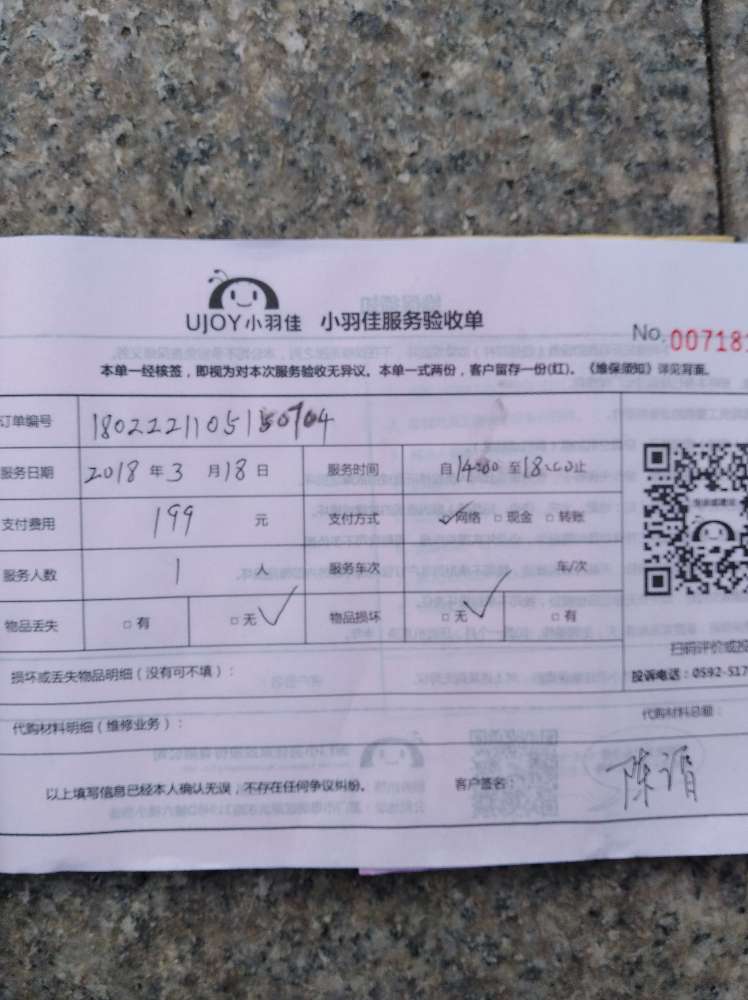 UJOY小羽佳 小羽佳服务验收单
No. 007181
本单一经核签，即视为对本次服务验收无异议。本单一式两份，客户留存一份(红)。《维保须知》详见背面。
订单编号 1802221105150704
服务日期 2018年3月18日 服务时间 自14:00至18:00止
支付费用 199元 支付方式 ☑网络 □现金 □转账
服务人数 1人 服务车次 车/次
物品丢失 □有 □无✓ 物品损坏 □无✓ □有
扫码评价或投
损坏或丢失物品明细（没有可不填）：
投诉电话：0592-517
代购材料明细（维修业务）： 代购材料总额：
以上填写信息已经本人确认无误，不存在任何争议纠纷。 客户签名：